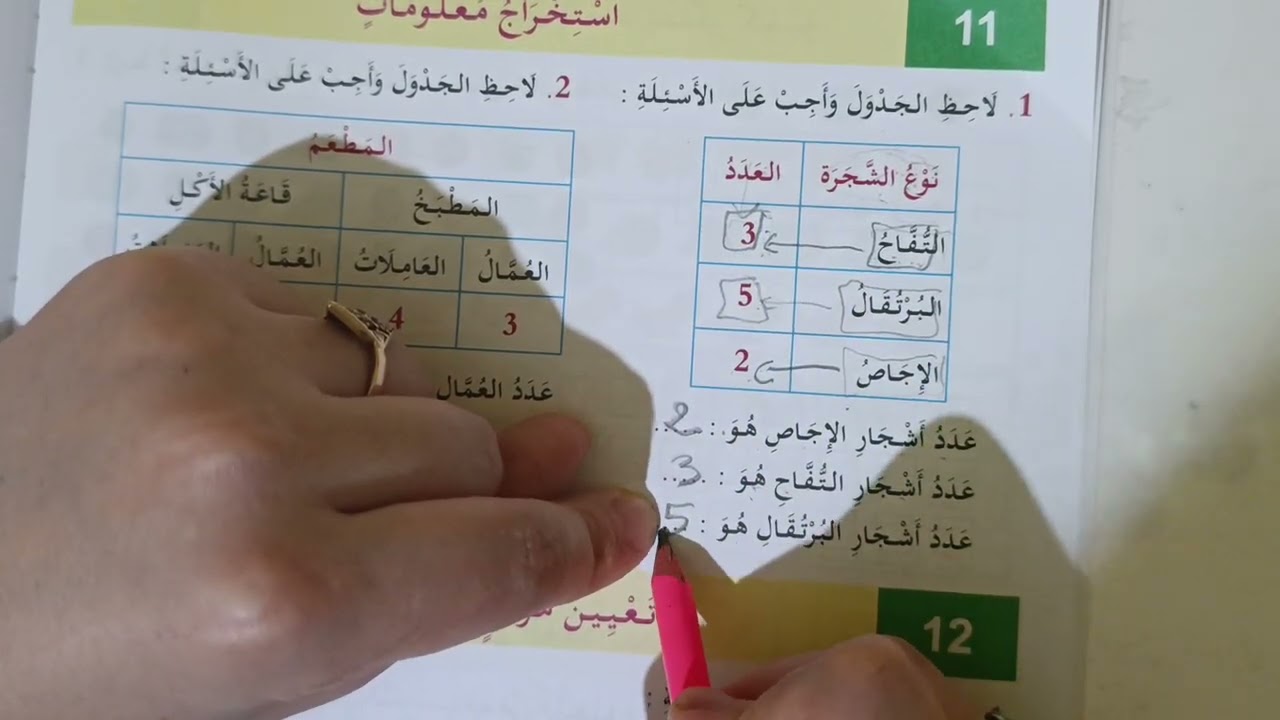 11
اسْتِخْرَاجُ مَعْلُومَاتٍ
1. لَاحِظِ الجَدْوَلَ وَأَجِبْ عَلَى الأَسْئِلَةِ :
نَوْعُ الشَّجَرَة العَدَدُ
التُّفَّاحُ 3
البُرْتُقَالُ 5
الإِجَاصُ 2
عَدَدُ أَشْجَارِ الإِجَاصِ هُوَ : 2
عَدَدُ أَشْجَارِ التُّفَّاحِ هُوَ : 3
عَدَدُ أَشْجَارِ البُرْتُقَالِ هُوَ : 5
2. لَاحِظِ الجَدْوَلَ وَأَجِبْ عَلَى الأَسْئِلَةِ :
المَطْعَمُ
المَطْبَخُ قَاعَةُ الأَكْلِ
العُمَّالُ العَامِلَاتُ العُمَّالُ
3 4
عَدَدُ العُمَّال
12
تَعْيِين